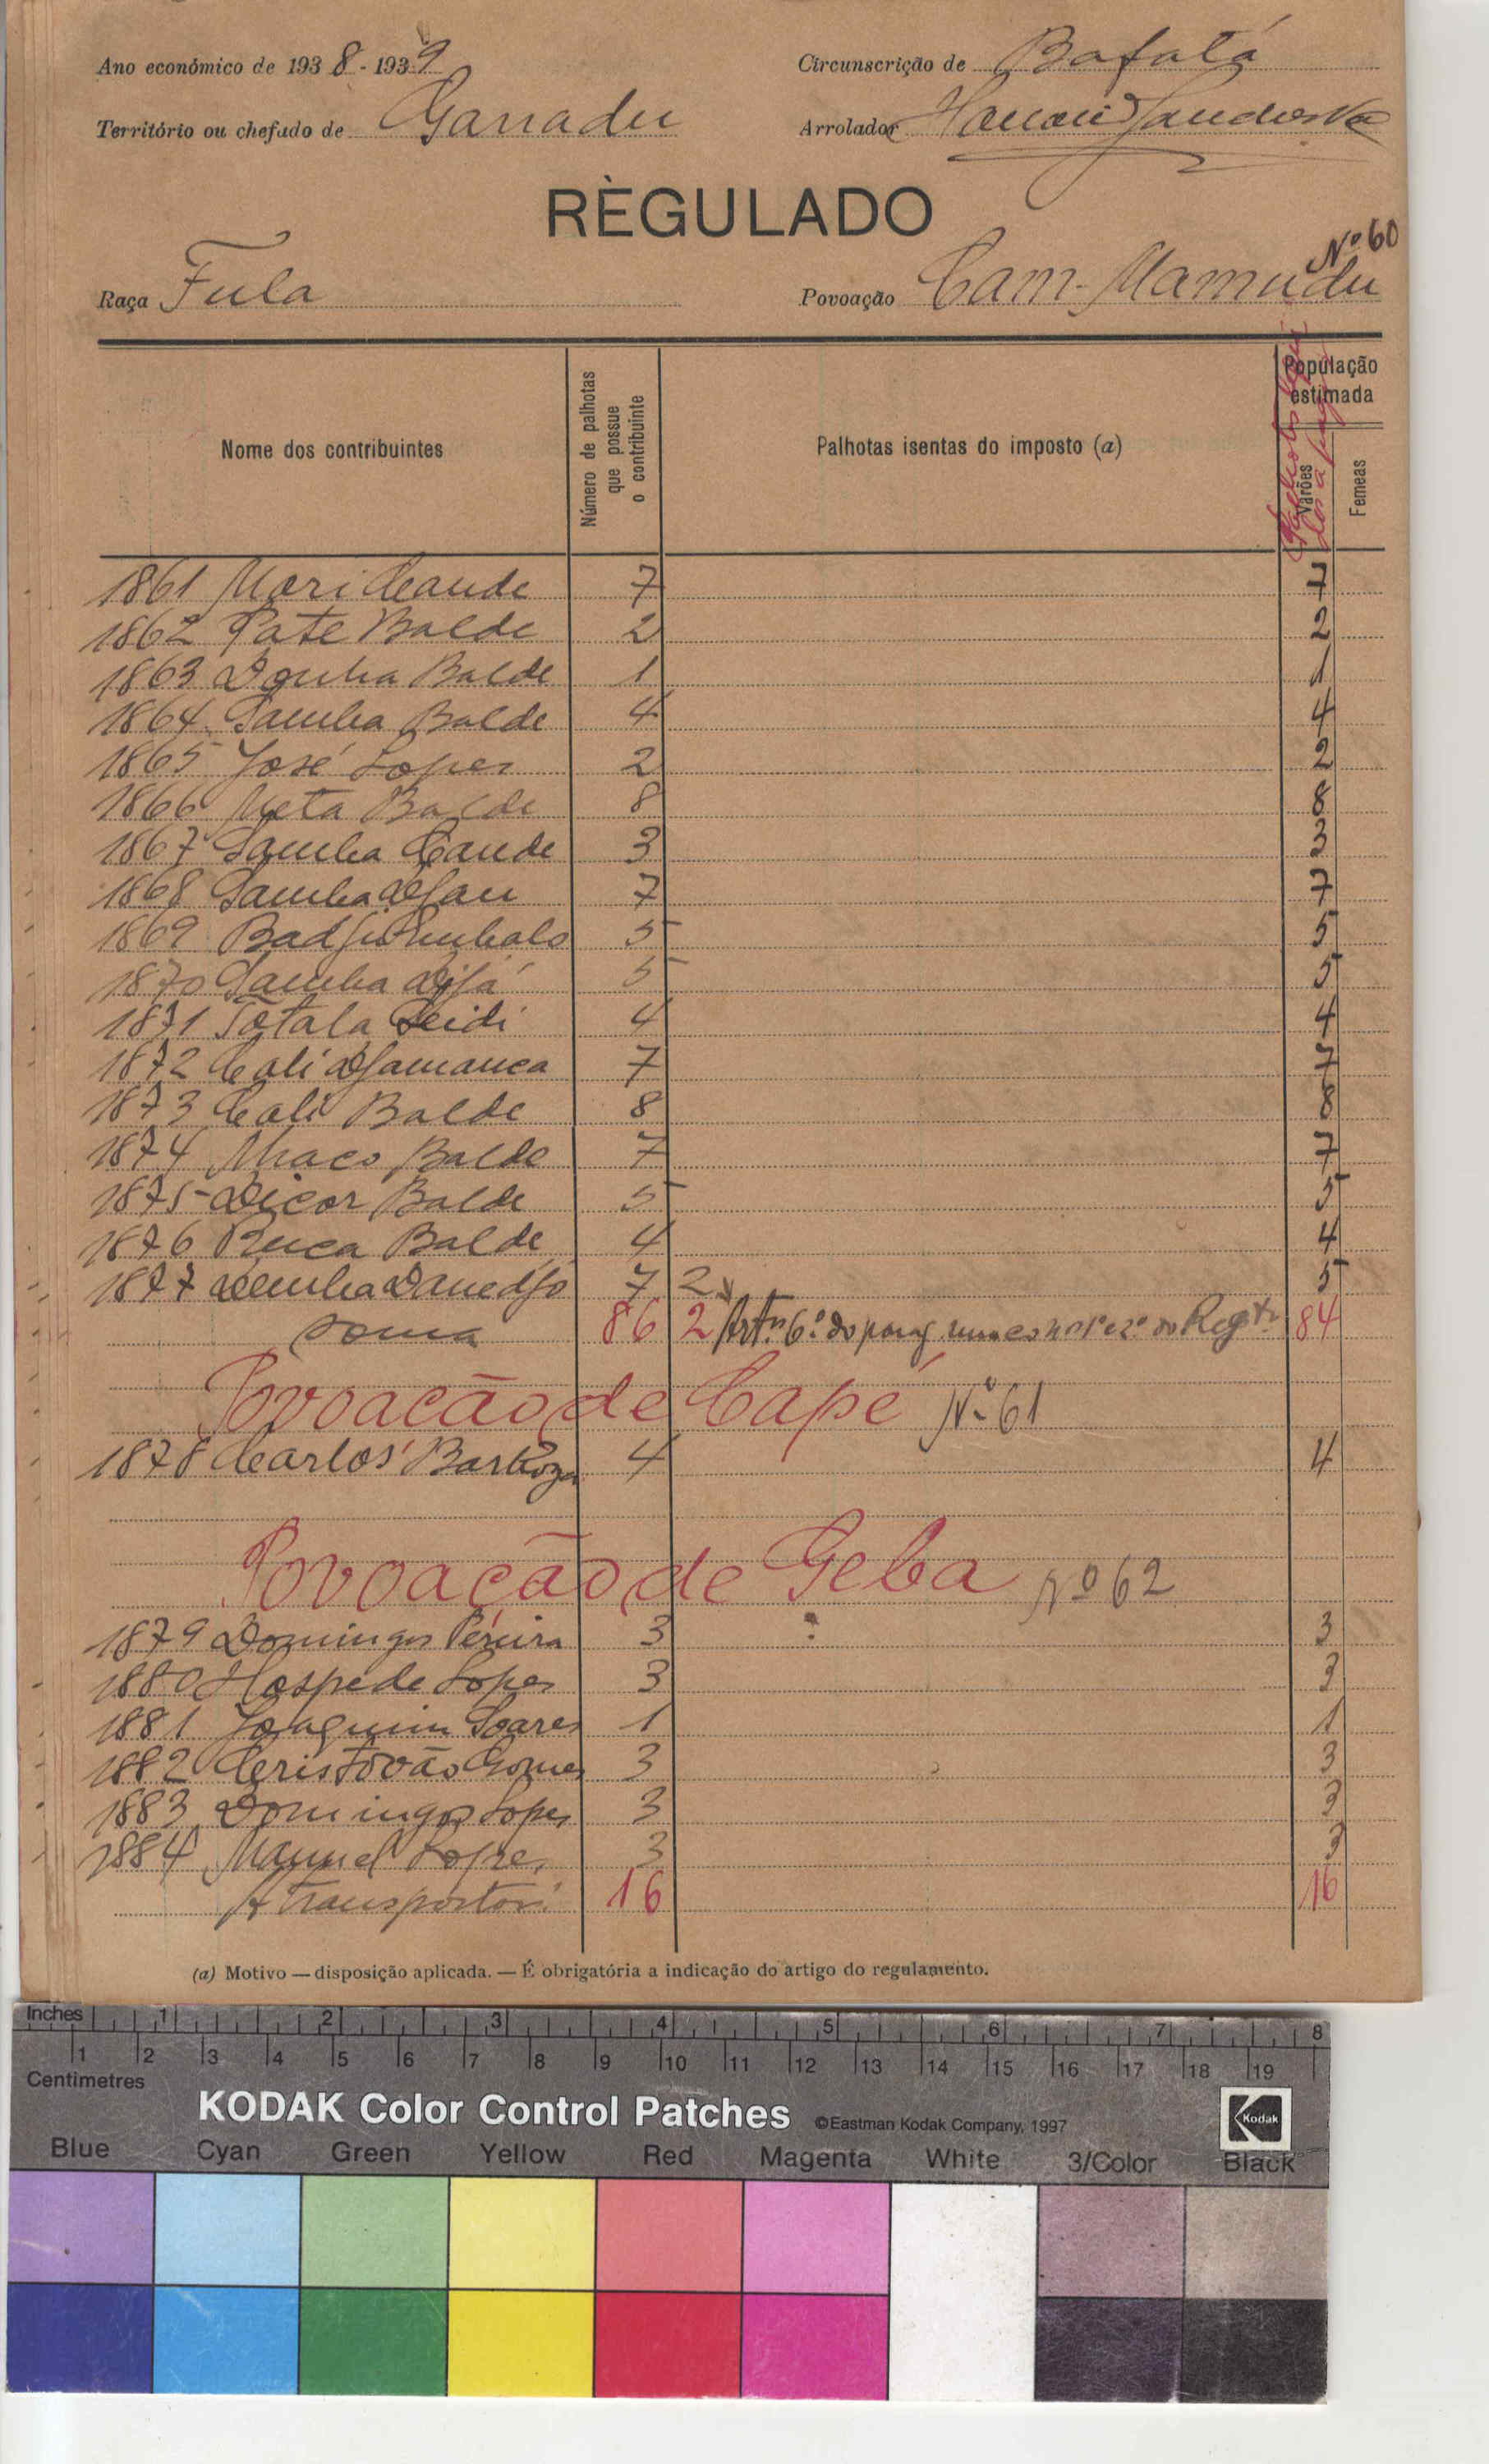 Ano económico de 1938-1939 Circunscrição de Bafatá
Território ou chefado de Ganadu Arrolador
RÈGULADO
Nº 60
Raça Fula Povoação Cam-Mamudu
Nome dos contribuintes Número de palhotas que possue o contribuinte Palhotas isentas do imposto (a) População estimada Varões Femeas
1861 Mori Cande 7 7
1862 Pate Balde 2 2
1863 Balde 1 1
1864 Samba Balde 4 4
1865 José Lopes 2 2
1866 Meta Balde 8 8
1867 Samba Cande 3 3
1868 Samba Djau 7 7
1869 Embalo 5 5
1870 Samba 5 5
1871 Seidi 4 4
1872 Cali Djamanca 7 7
1873 Cali Balde 8 8
1874 Balde 7 7
1875 Dicor Balde 5 5
1876 Balde 4 4
1877 Demba 7 2 5
Soma 86 2 84
Povoação de Capé Nº 61
1878 Carlos Barboza 4 4
Povoação de Geba Nº 62
1879 Domingos Pereira 3 3
1880 Hospede Lopes 3 3
1881 Joaquim Soares 1 1
1882 Cristovão Gomes 3 3
1883 Domingos Lopes 3 3
1884 Manuel Lopes 3 3
A transportar 16 16
(a) Motivo — disposição aplicada. — É obrigatória a indicação do artigo do regulamento.
Inches 1 2 3 4 5 6 7 8
1 2 3 4 5 6 7 8 9 10 11 12 13 14 15 16 17 18 19
Centimetres
KODAK Color Control Patches ©Eastman Kodak Company, 1997 Kodak
Blue Cyan Green Yellow Red Magenta White 3/Color Black